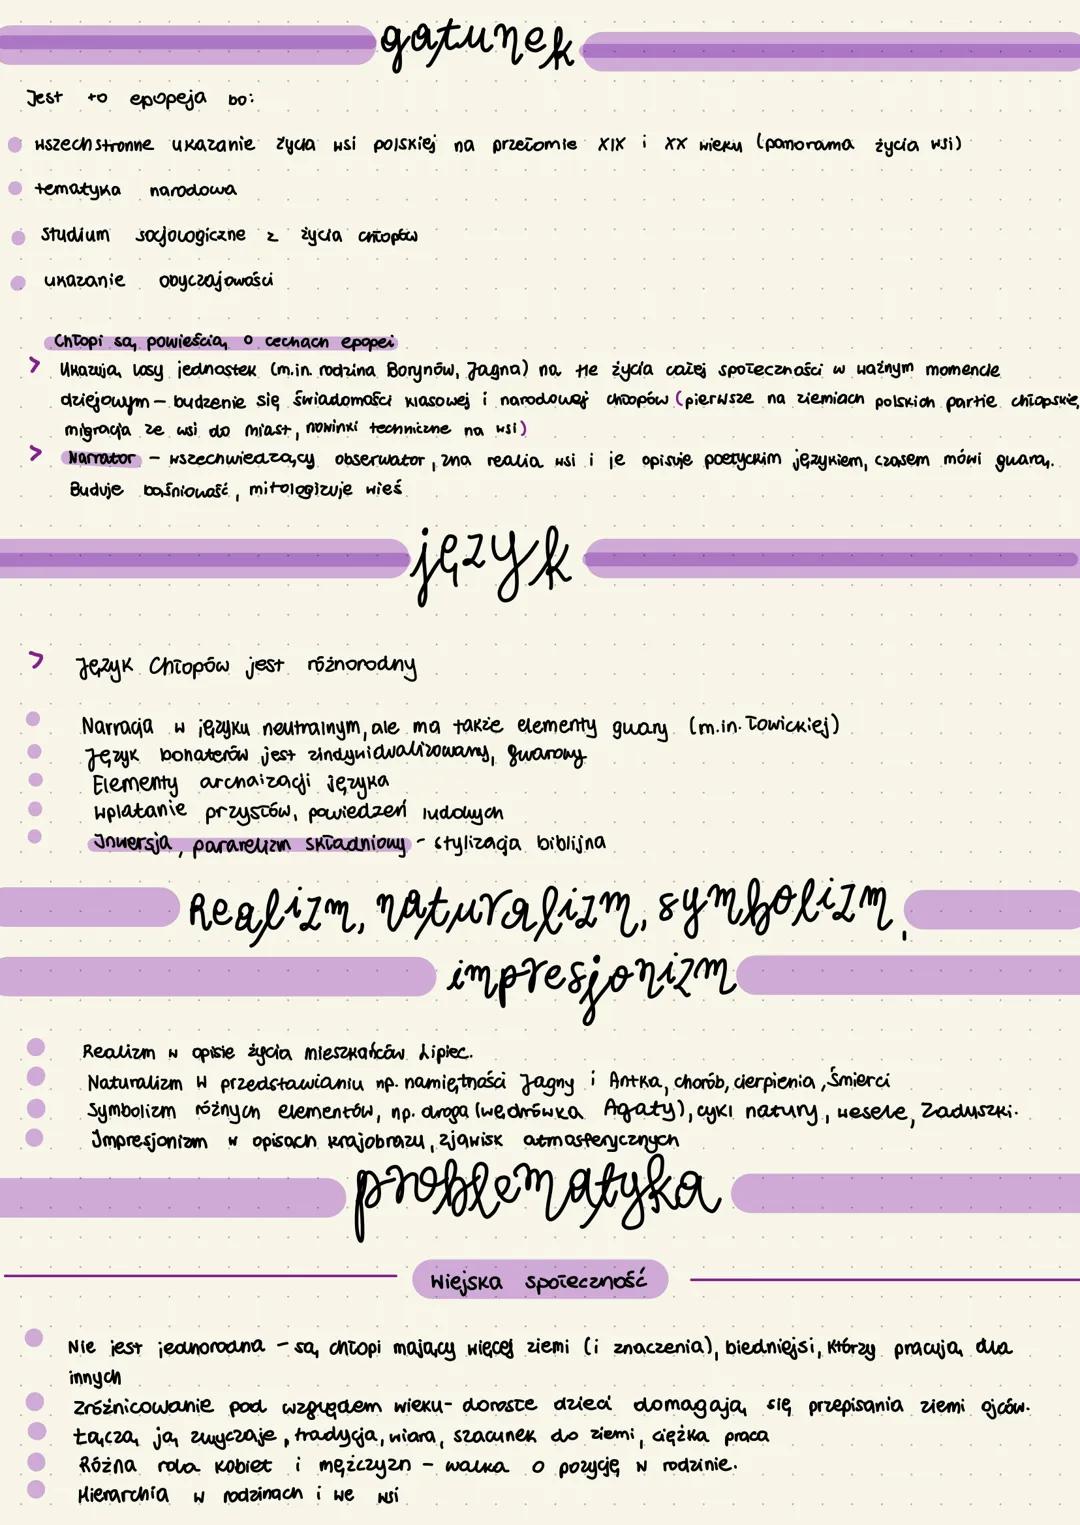 gatunek
Jest to epopeja bo:
wszechstronne ukazanie życia wsi polskiej na przełomie XIX i XX wieku (panorama życia wsi)
tematyka narodowa
Studium socjologiczne z życia chłopów
ukazanie obyczajowości
Chłopi są powieścią o cechach epopei
Ukazują losy jednostek (m.in. rodzina Borynów, Jagna) na tle życia całej społeczności w ważnym momencie
dziejowym – budzenie się świadomości klasowej i narodowej chłopów (pierwsze na ziemiach polskich partie chłopskie,
migracja ze wsi do miast, nowinki techniczne na wsi)
Narrator – wszechwiedzący obserwator, zna realia wsi i je opisuje poetyckim językiem, czasem mówi gwarą.
Buduje baśniowość, mitologizuje wieś
język
Język Chłopów jest różnorodny
Narracja w języku neutralnym, ale ma także elementy gwary (m.in. Łowickiej)
Język bohaterów jest zindywidualizowany, gwarowy
Elementy archaizacji języka
Wplatanie przysłów, powiedzeń ludowych
Inwersja, pararelizm składniowy - stylizacja biblijna
Realizm, naturalizm, symbolizm,
impresjonizm
Realizm w opisie życia mieszkańców Lipiec.
Naturalizm w przedstawianiu np. namiętności Jagny i Antka, chorób, cierpienia, śmierci
Symbolizm różnych elementów, np. droga (wędrówka Agaty), cykl natury, wesele, Zaduszki.
Impresjonizm w opisach krajobrazu, zjawisk atmosferycznych
problematyka
Wiejska społeczność
Nie jest jednorodna – są chłopi mający więcej ziemi (i znaczenia), biedniejsi, którzy pracują dla
innych
Zróżnicowanie pod względem wieku- dorosłe dzieci domagają się przepisania ziemi ojców.
Łączą ją zwyczaje, tradycja, wiara, szacunek do ziemi, ciężka praca
Różna rola kobiet i mężczyzn – walka o pozycję w rodzinie.
Hierarchia w rodzinach i we wsi